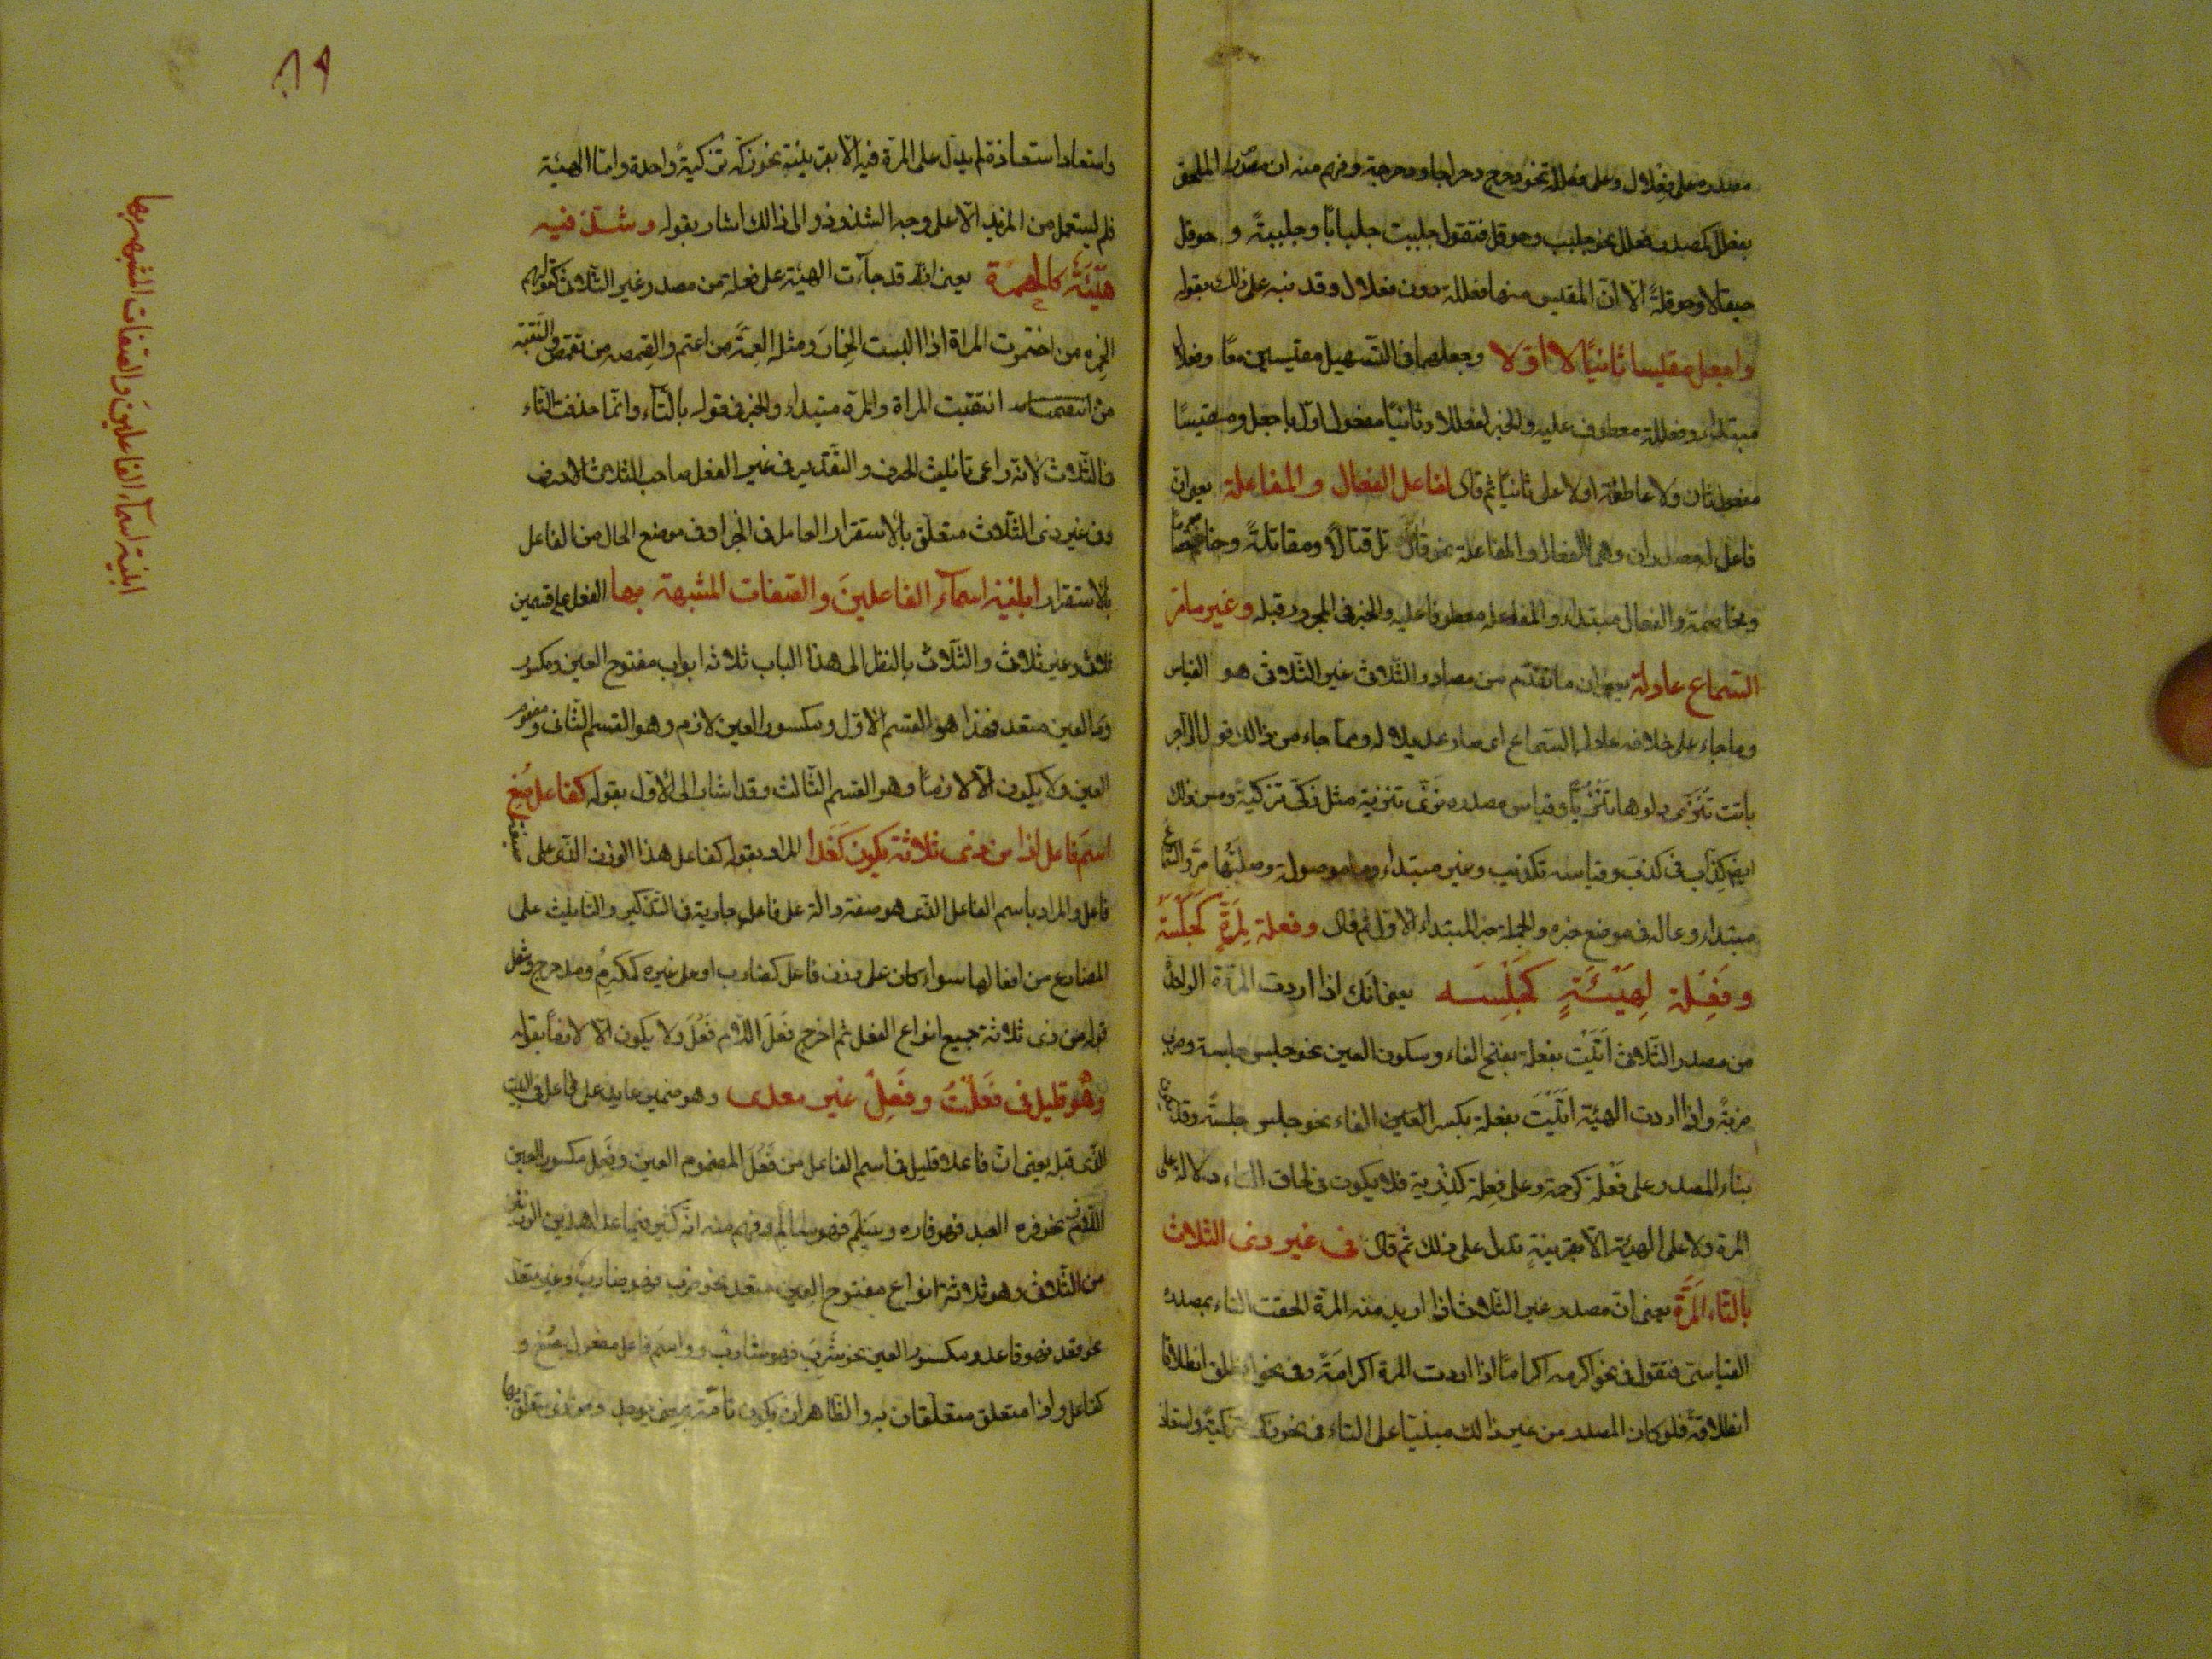 مصدره على فعلال وعلى فعللة نحو دحرج دحراجا ودحرجة وفهم منه ان مصدر الملحق
بفعلل كمصدر فعلل نحو جلبب وحوقل فتقول جلببت جلبابًا وجلببةً و حوقل
حيقالا وحوقلةً الّا انّ المقيس منها فعللة دون فعلال وقد نبه على ذلك بقوله
واجعل مقيسا ثانيًا لا اوّلا وجعلهما فى التسهيل مقيسين معًا وفعلال
مبتداء وفعللة معطوف عليه والخبر لفعللا وثانيًا مفعول اوّل باجعل ومقيسًا
مفعول ثان ولا عاطفة اولا على ثانيًا ثم قال لفاعل الفعال والمفاعلة يعنى ان
فاعل له مصدران وهما الفعال والمفاعلة نحو قاتل قتالًا ومقاتلةً وخاصم خصاما
ومخاصمة والفعال مبتداء والمفاعلة معطوف عليه والخبر فى المجرور قبله وغير ما مرّ
السّماع عادله يعنى ان ما تقدّم من مصادر الثّلاثى غير الثّلاثى هو القياس
وما جاء على خلافه عادله السّماع اى صار عديلا له ومما جاء من ذالك قول الراجز
باتت تُنَزّى دلوها تَنْزِيًّا وقياس مصدره نزّى تنزية مثل زكّى تزكية ومن ذلك
ايضا كِذّاب فى كذّب وقياسه تكذيب وغير مبتداء وما موصولة وصلتها مرّ والسّماع
مبتداء وعادله فى موضع خبره والجملة خبر المبتداء الاوّل ثم قال وفعلة لِمَرّةٍ كَجَلْسَة
وفِعْلة لِهَيْئَةٍ كَجِلْسَه يعنى انّك اذا اردت المرّة الواحدة
من مصدر الثّلاثى اتَيْت بفعلة بفتح الفاء وسكون العين نحو جلس جلسة وضرب
ضربةً واذا اردت الهيئة اتَيْتَ بفعلة بكسر الفاء نحو جلس جلسةً وقد يكون
بناء المصدر على فَعْلة كرحمة وعلى فِعلة كذرية فلا يكون فى لحاق التاء دلالة على
المرة ولا على الهيئة الّا بقرينةٍ تدل على ذلك ثم قال فى غير ذى الثلاث
بالتّاء المَرّة يعنى انّ مصدر غير الثّلاث اذا اريد منه المرّة الحقت التاء بمصدره
القياسىّ فتقول فى نحو اكرمه اكرامًا اذا اردت المرة اكرامَةً وفى نحو انطلق انطلاقا
انطلاقةً فلو كان المصدر من غير ذالك مبنيًا على التاء فى نحو زكّى تزكيةً واستعاذ
واستعاذ استعاذة لم يدل على المرّة فيه الّا بقرينة نحو زكّه تزكيةً واحدة وامّا الهيئة
فلم يستعمل من المزيد الّا على وجه الشذوذ والى ذالك اشار بقوله وشذّ فيه
هَيْئَةٌ كالخِمْرة يعنى انّه قد جآءت الهيئة على فعلة من مصدر غير الثّلاثى كقولهم
الخِمره من اختمرت المراة اذا البست الخِمَارَ ومثله العِمّة من اعتم والقِمصه من تقمص والنّقبة
من انتقبت المراة والمرّة مبتداء والخبر فى قوله بالتّآء وانّما حذفت التاء
فى الثّلاث لانّه راعى تانيث الحرف والتقدير فى غير الفعل صاحب الثلاث الاحرف
وفى غير ذى الثّلاث متعلّق بالاستقرار العامل فى الخبر او فى موضع الحال من الفاعل
بالاستقرار ابنية اسمآء الفاعلينَ والصّفات المشبهة بها الفعل على قسمين
ثلاثى وغير ثلاثى والثّلاثىّ بالنظر الى هذا الباب ثلاثة ابواب مفتوح العين ومكسور
العين متعد فهذا هو القسم الاوّل ومكسور العين لازم وهو القسم الثّانى ومضموم
العين ولا يكون الّا لازمًا وهو القسم الثّالث وقد اشار الى الاوّل بقوله كفاعل صُغ
اسمَ فاعل اذا من ذى ثلاثة يكون كَغَذا المراد بقوله كفاعل هذا الوزن الّذى على
فاعل والمراد باسم الفاعل الّذى هو صفة دالّة على فاعلٍ جارية فى التّذكير والتّانيث على
المضارع من افعالها سواء كان على وزن فاعل كضارب او على غيره كمُكرِمٍ ومدحرج وشمل
قوله من ذى ثلاثة جميع انواع الفعل ثم اخرج فَعِلَ اللّازم فَعُلَ ولا يكون الّا لازمًا بقوله
وهُو قليل فى فَعُلْتُ وفَعِلْ غير معدى وهو ضمير عايد على فاعل فى البيت
الّذى قبله يعنى انّ فاعلا قليل فى اسم الفاعل من فَعُلَ المضموم العين وفَعِل مكسور العين
اللّازم نحو فره العبد فهو فاره وسَلِمَ فهو سالم وفهم منه انّه كثير فيما عدا هذين الوزنين
من الثّلاثى وهو ثلاثة انواع مفتوح العين متعد نحو ضرب فهو ضارب وغير متعدّ
نحو قعد فهو قاعد ومكسور العين نحو شَرِبَ فهو شاربٌ واسمَ فاعل مفعول بصُغ و
كفاعل واذا متعلق متعلّقان به والظّاهر ان يكون تامّة بمعنى يوجد ومن ذى متعلق بها
ابنية اسمآء الفاعلينَ والصّفات المشبهة بها